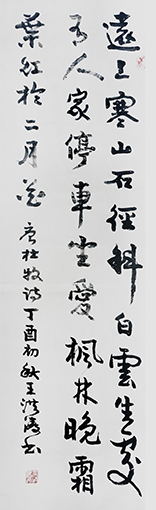 遠上寒山石徑斜白雲生處
有人家停車坐愛楓林晚霜
葉紅於二月花 唐杜牧詩丁酉初秋王洪涛书